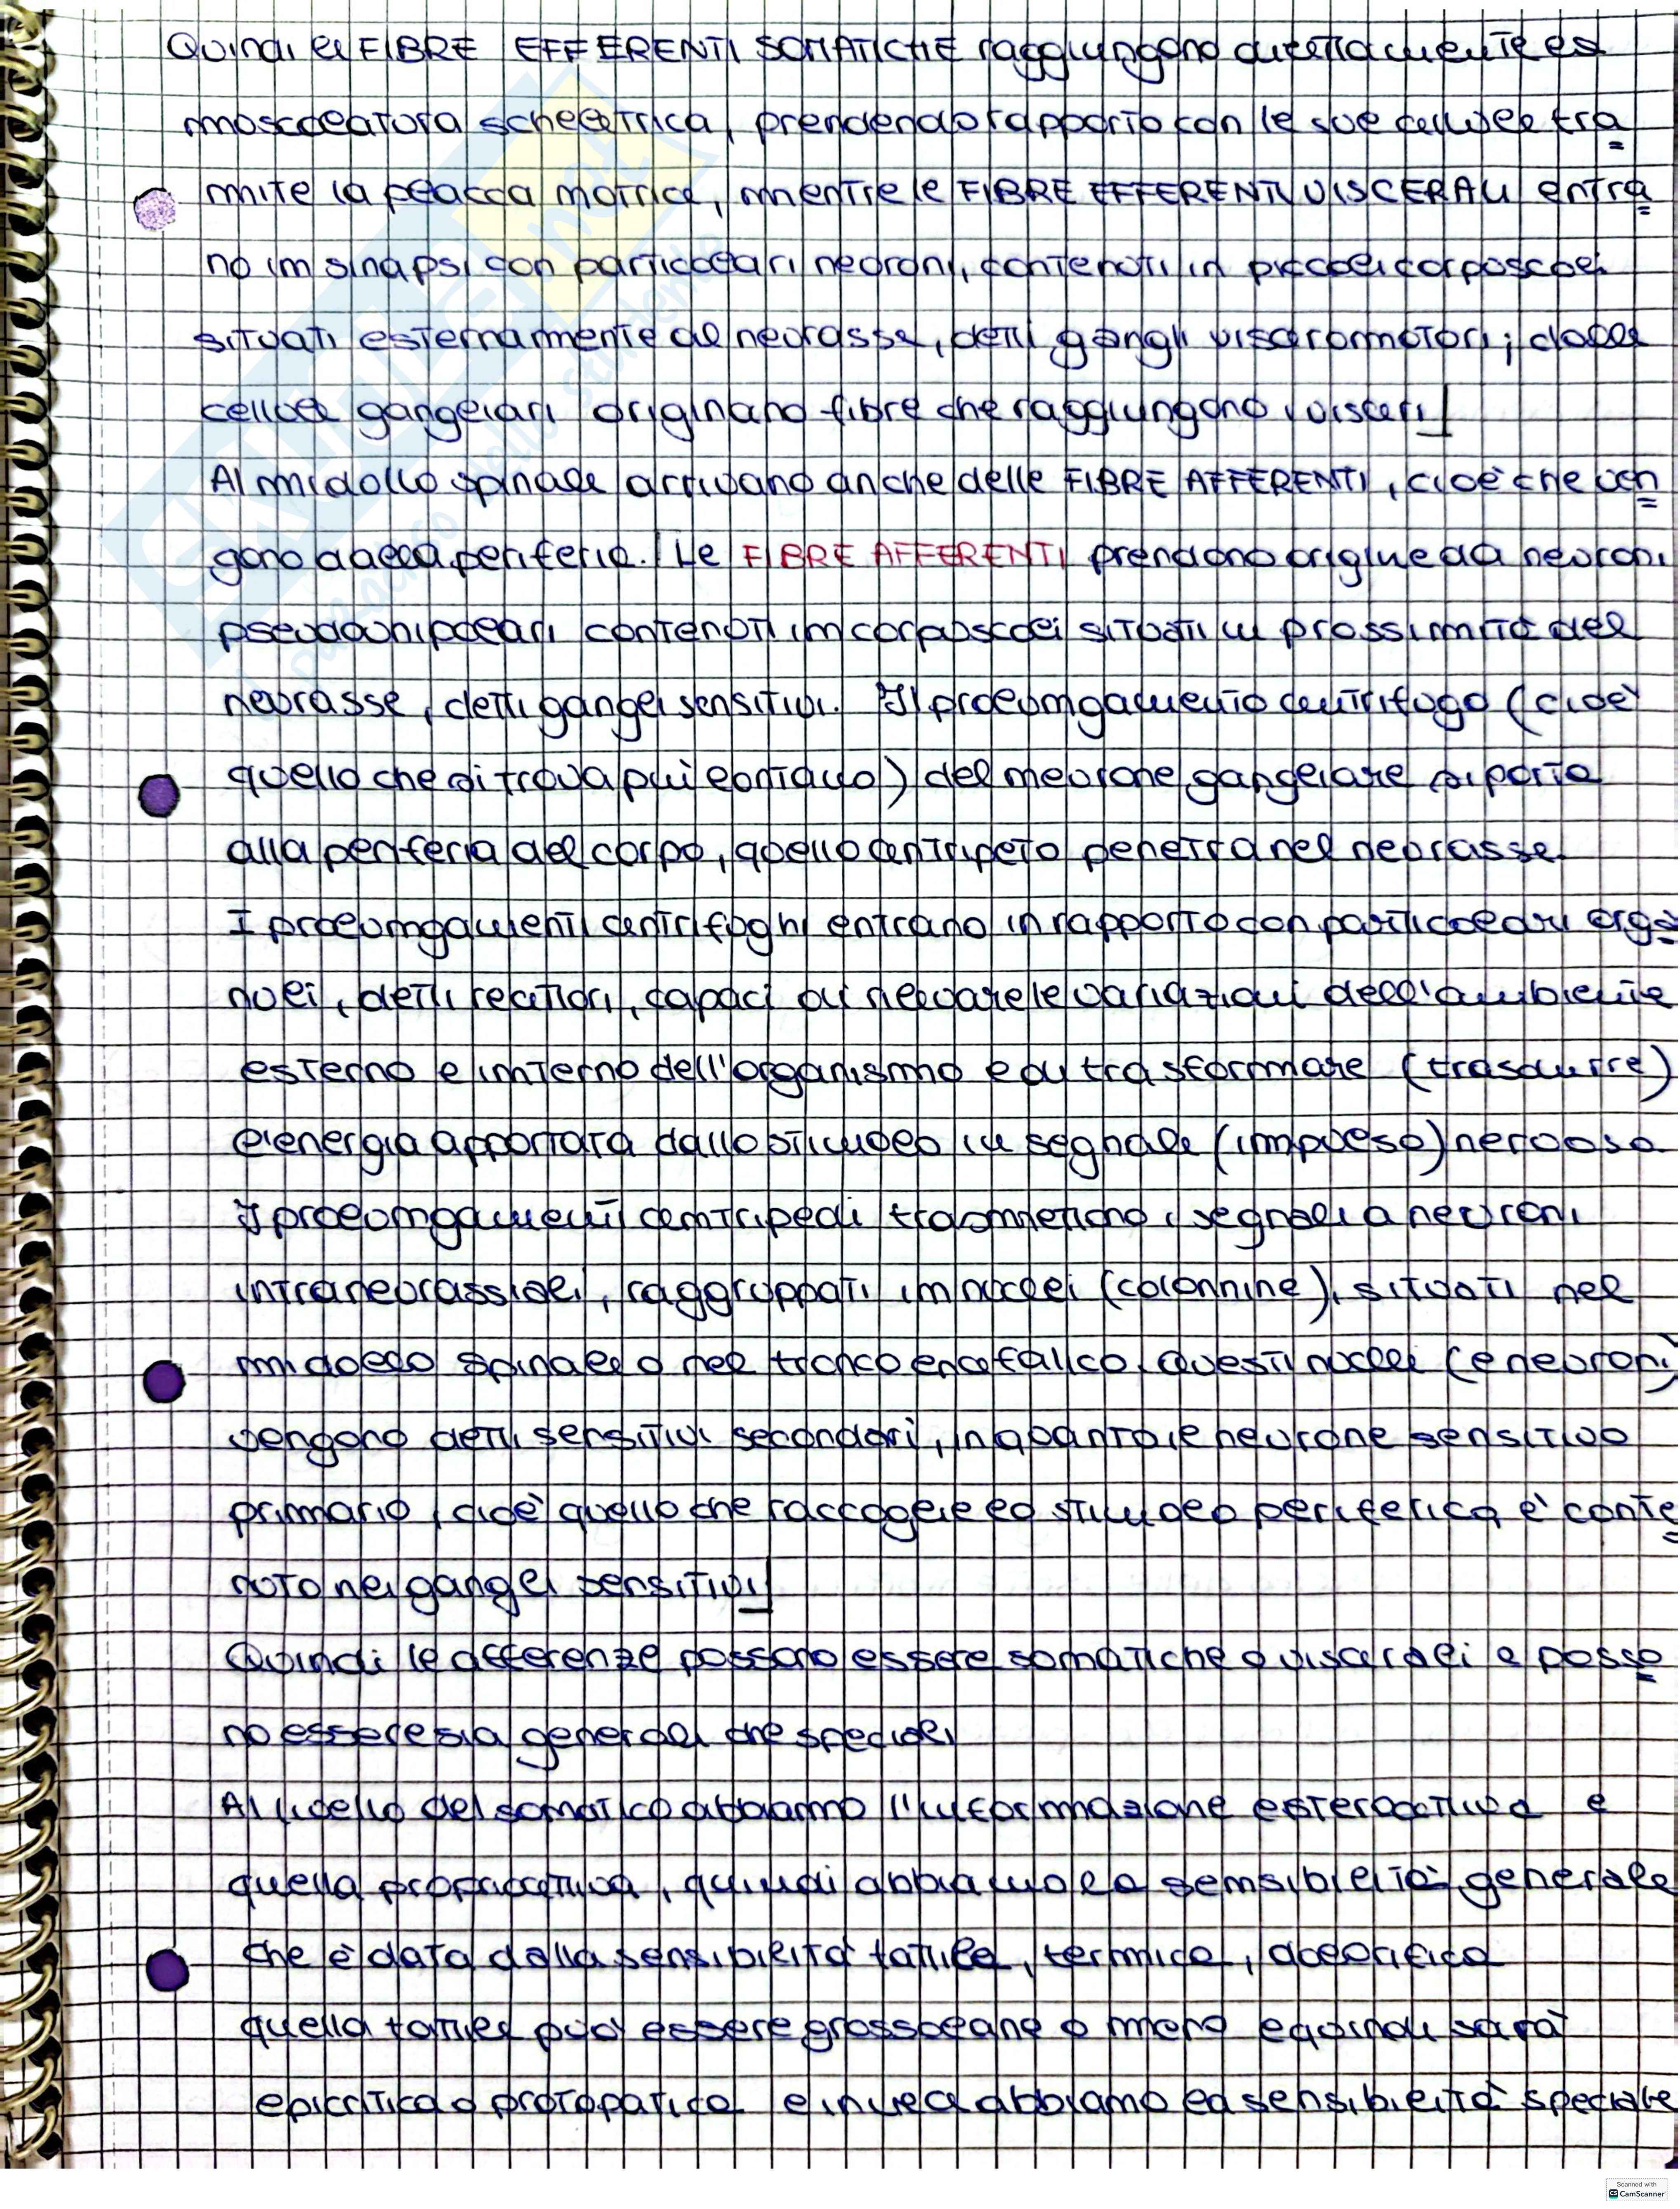 Quindi le FIBRE EFFERENTI SOMATICHE raggiungono direttamente la
muscolatura scheletrica, prendendo rapporto con le sue cellule tra
mite la placca motrice, mentre le FIBRE EFFERENTI VISCERALI entra
no in sinapsi con particolari neuroni, contenuti in piccoli corpuscoli
situati esternamente al nevrasse, detti gangli visceromotori; dalle
cellule gangliari originano fibre che raggiungono i visceri
Al midollo spinale arrivano anche delle FIBRE AFFERENTI, cioè che ven
gono dalla periferia. Le FIBRE AFFERENTI prendono origine da neuroni
pseudounipolari contenuti in corpuscoli situati in prossimità del
nevrasse, detti gangli sensitivi. Il prolungamento centrifugo (cioè
quello che si trova più lontano) del neurone gangliare si porta
alla periferia del corpo, quello centripeto penetra nel nevrasse.
I prolungamenti centrifughi entrano in rapporto con particolari orga
nuli, detti recettori, capaci di rilevare le variazioni dell'ambiente
esterno e interno dell'organismo e di trasformare (trasdurre)
l'energia apportata dallo stimolo in segnale (impulso) nervoso.
I prolungamenti centripedi trasmettono i segnali a neuroni
intranevrassiali, raggruppati in nuclei (colonnine), situati nel
midollo spinale o nel tronco encefalico. Questi nuclei (e neuroni)
vengono detti sensitivi secondari, in quanto il neurone sensitivo
primario, cioè quello che raccoglie lo stimolo periferico è conte
nuto nei gangli sensitivi
Quindi le afferenze possono essere somatiche o viscerali e posso
no essere sia generali che speciali
A livello del somatico abbiamo l'informazione esterocettiva e
quella propriocettiva, quindi abbiamo la sensibilità generale
che è data dalla sensibilità tattile, termica, dolorifica
quella tattile può essere grossolana o meno e quindi sarà
epicritica o protopatica e invece abbiamo la sensibilità speciale
SKUOLA.net
paradiso dello studente
Scanned with
CS CamScanner